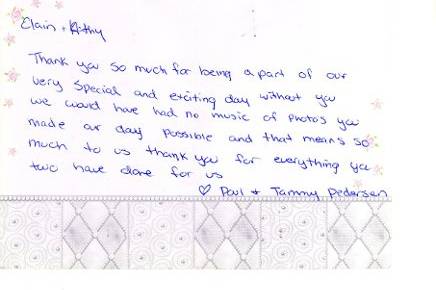 Clain + Kithy
Thank you so much for being a part of our
very special and exciting day without you
we would have had no music of photos you
made our day possible and that means so
much to us thank you for everything you
two have done for us
♡ Paul + Tammy Pedersen